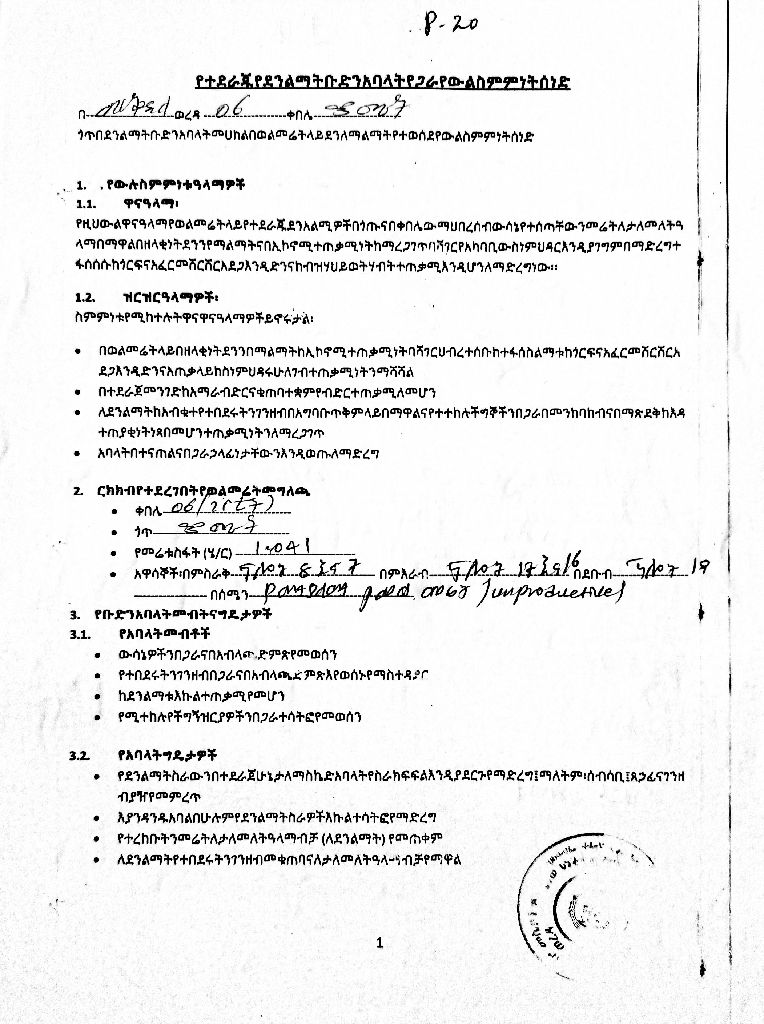 P-20
የተደራጁየደንልማትቡድንአባላትየጋራየውልስምምነትሰነድ
በ ወረዳ 06 ቀበሌ
ጎጥበደንልማትቡድንአባላትመሀከልበወልመሬትላይደንለማልማትየተወሰደየውልስምምነትሰነድ
1. .የውሉስምምነቱዓላማዎች
1.1. ዋናዓላማ፡
የዚህውልዋናዓላማየወልመሬትላይየተደራጁደንአልሚዎችበጎጡናበቀበሌውማህበረሰብውሳኔየተሰጣቸውንመሬትለታለመለትዓ
ላማበማዋልበዘላቂነትደንንየማልማትናበኢኮኖሚተጠቃሚነትከማረጋገጥባሻገርየአካባቢውስነምህዳርእንዲያገግምበማድረግተ
ፋሰሱሱከጎርፍናአፈርመሸርሸርአደጋእንዲድንናከብዝሃህይወትሃብትተጠቃሚእንዲሆንለማድረግነው።
1.2. ዝርዝርዓላማዎች፡
ስምምነቱየሚከተሉትዋናዋናዓላማዎችይኖሩታል፡
• በወልመሬትላይበዘላቂነትደንንበማልማትከኢኮኖሚተጠቃሚነትባሻገርህብረተሰቡከተፋሰስልማቱከጎርፍናአፈርመሸርሸርአ
ደጋእንዲድንናአጠቃላይከስነምህዳሩሁለገብተጠቃሚነትንማሻሻል
• በተደራጀመንገድከአማራብድርናቁጠባተቋምየብድርተጠቃሚለመሆን
• ለደንልማትከአብቁተየተበደሩትንገንዘብበአግባቡጥቅምላይበማዋልናየተተከሉችግኞችንበጋራበመንከባከብናበማጽደቅከእዳ
ተጠያቂነትነጻበመሆንተጠቃሚነትንለማረጋገጥ
• አባላትበተናጠልናበጋራኃላፊነታቸውንእንዲወጡለማድረግ
2. ርክክብየተደረገበትየወልመሬትመግለጫ
• ቀበሌ 06
• ጎጥ
• የመሬቱስፋት (ሄ/ር) 1.041
• አዋሳኞች፡በምስራቅ በምእራብ በደቡብ
በሰሜን (unproductive)
3. የቡድንአባላትመብትናግዴታዎች
3.1. የአባላትመብቶች
• ውሳኔዎችንበጋራናበአብላጫድምጽየመወሰን
• የተበደሩትንገንዘብበጋራናበአብላጫድምጽእየወሰኑየማስተዳደር
• ከደንልማቱእኩልተጠቃሚየመሆን
• የሚተከሉየችግኝዝርያዎችንበጋራተሳትፎየመወሰን
3.2. የአባላትግዴታዎች
• የደንልማትስራውንበተደራጀሁኔታለማስኬድአባላትየስራክፍፍልእንዲያደርጉየማድረግ፤ማለትም፡ሰብሳቢ፤ጸኃፊናገንዘ
ብያዥየመምረጥ
• እያንዳንዱአባልበሁሉምየደንልማትስራዎችእኩልተሳትፎየማድረግ
• የተረከቡትንመሬትለታለመለትዓላማብቻ (ለደንልማት) የመጠቀም
• ለደንልማትየተበደሩትንገንዘብመቁጠባናለታለመለትዓላማብቻየማዋል
1